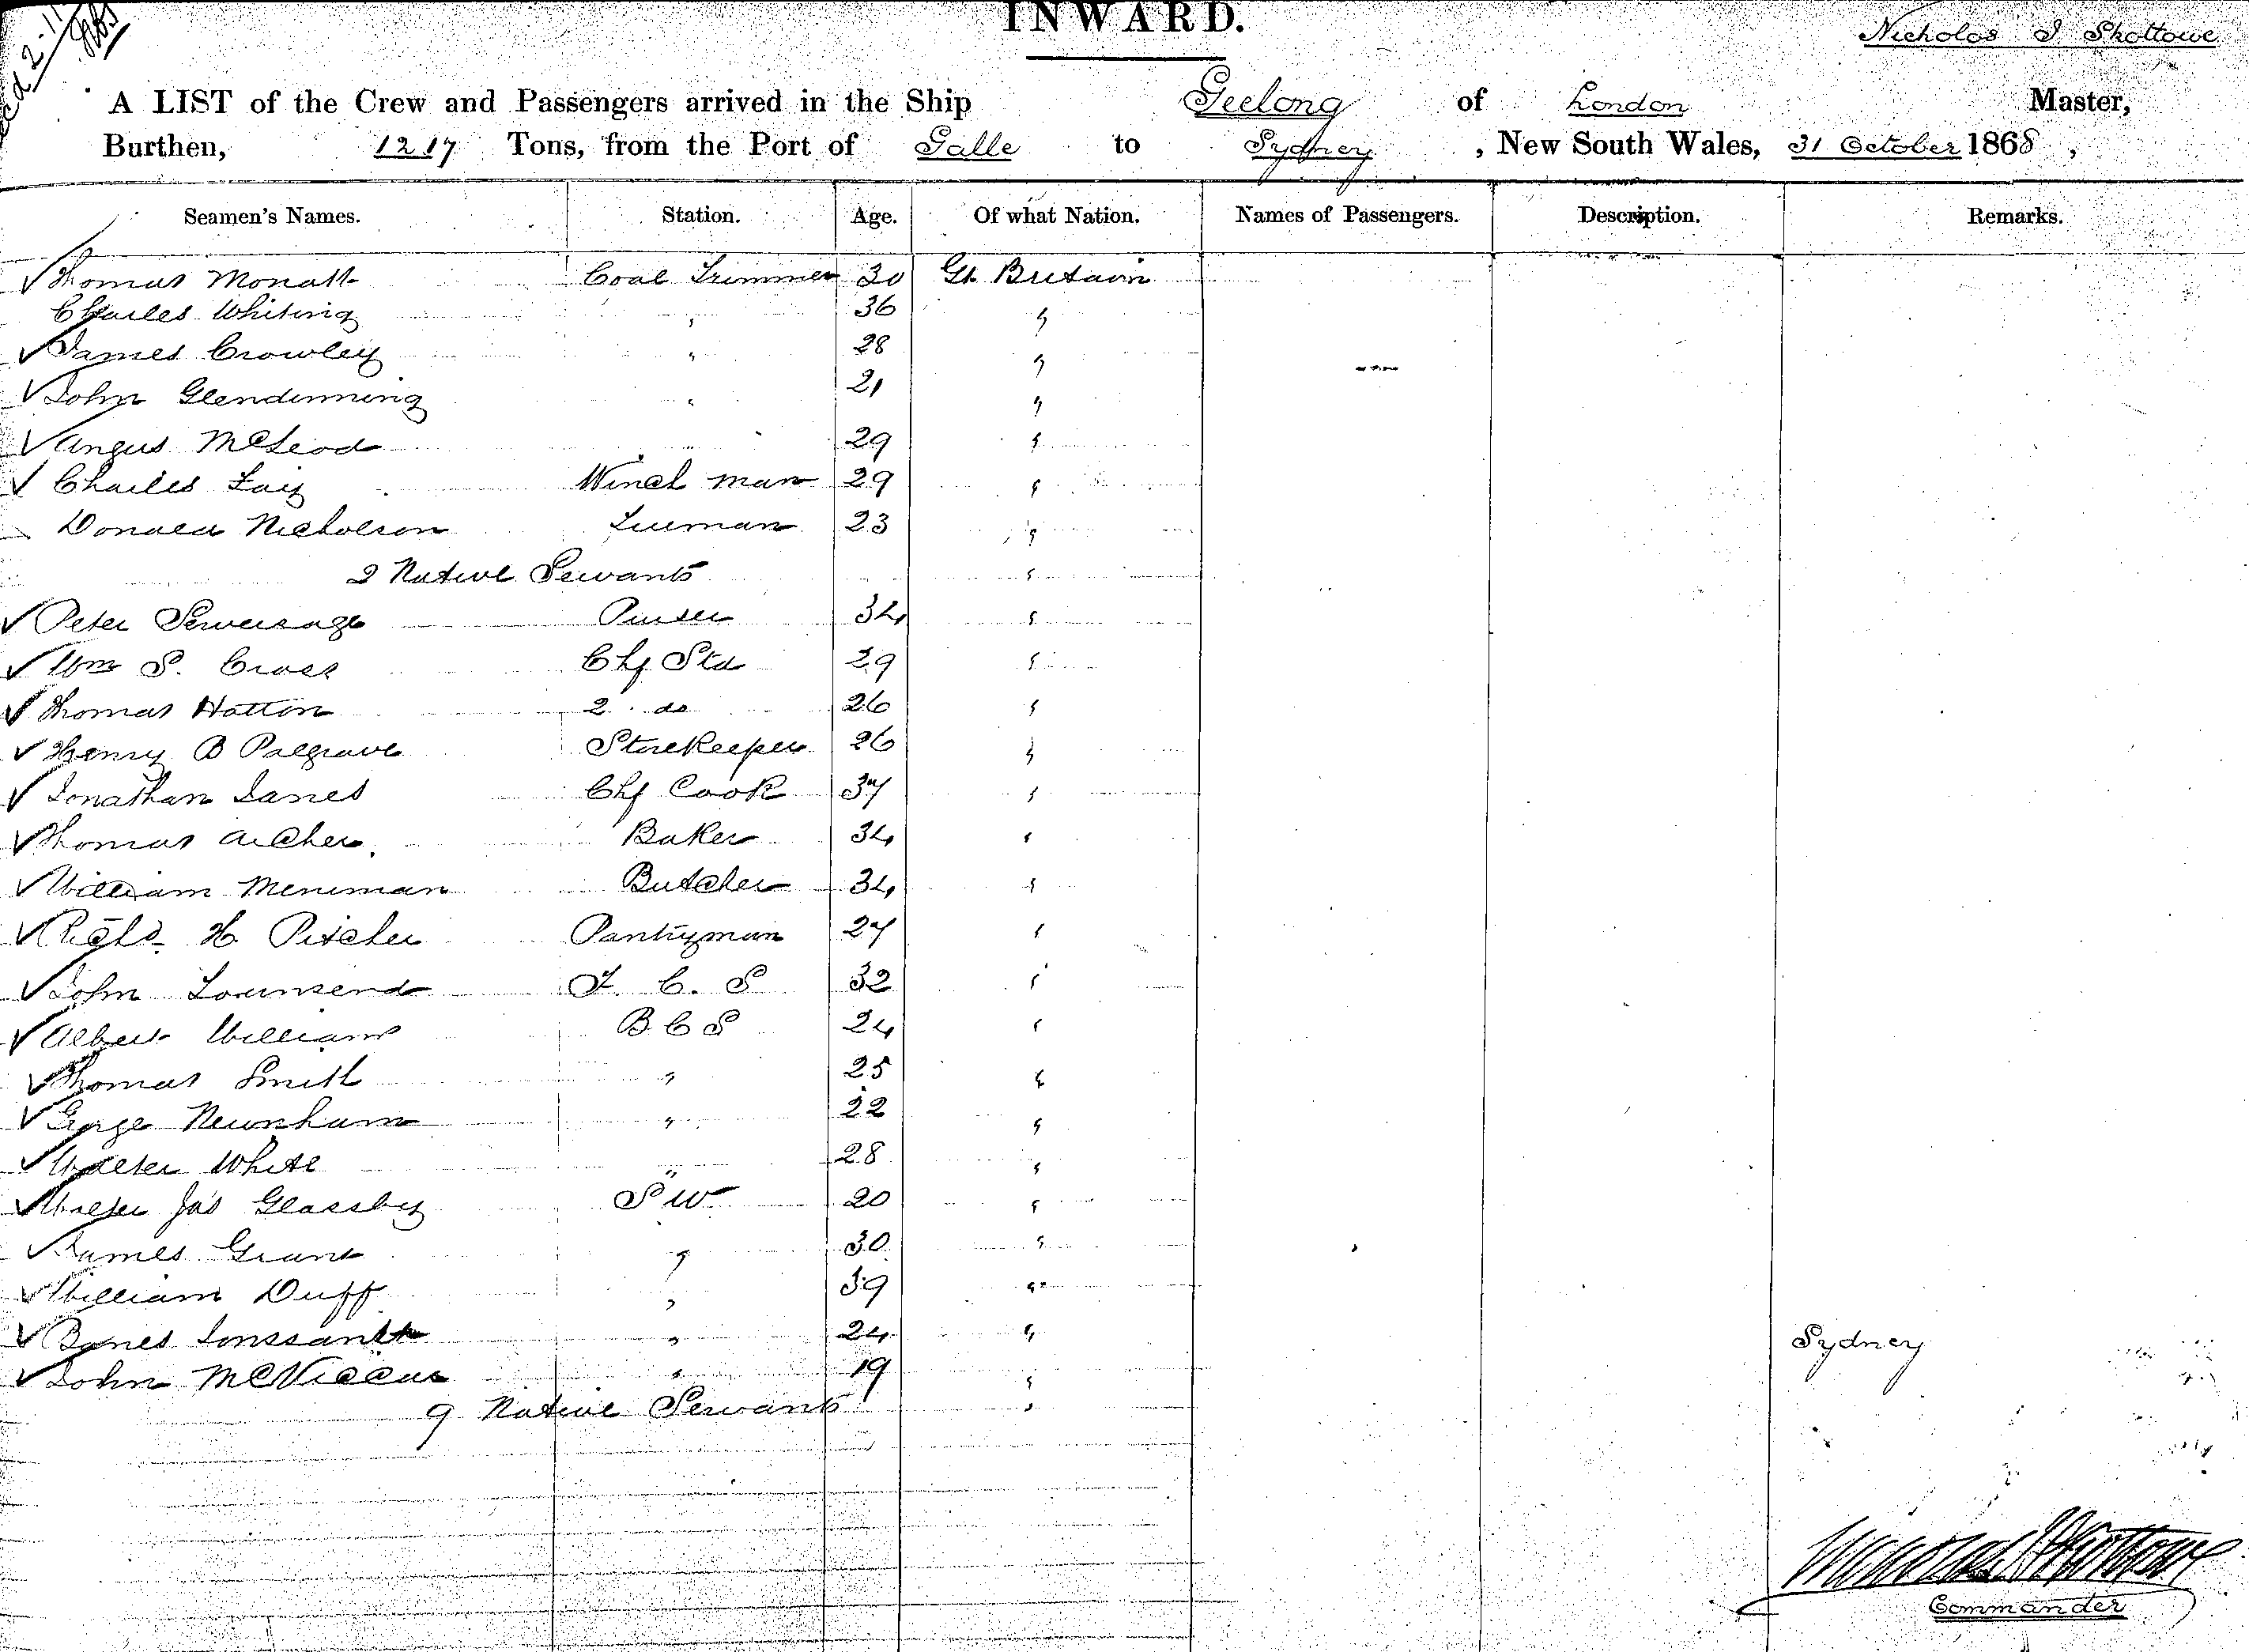 INWARD.
Nicholas I Skottowe
A LIST of the Crew and Passengers arrived in the Ship Geelong of London Master,
Burthen, 1217 Tons, from the Port of Galle to Sydney, New South Wales, 31 October 1868,
Seamen's Names. Station. Age. Of what Nation. Names of Passengers. Description. Remarks.
Thomas Coal Trimmer 30 Gt. Britain
Charles Whiting " 36 "
James Crowley " 28 "
John Glendinning " 21 "
Angus McLeod 29 "
Charles Winch man 29 "
Donald Nicholson 23 "
2 Native Servants "
Peter Purser 34 "
Wm S. Cross Chf Std 29 "
Thomas Hatton 2 do 26 "
Henry B Palgrave Storekeeper 26 "
Jonathan Janes Chf Cook 37 "
Thomas Archer. Baker 34 "
William Merriman Butcher 34 "
Richd. H. Pitcher Pantryman 27 "
John Townsend F. C. S 32 "
Albert Williams B C S 24 "
Thomas Smith " 25 "
George Newnham " 22 "
Walter White " 28 "
Walter Jas Glassby S W 20 "
James Grant " 30 "
William Duff " 39 "
" 24 " Sydney
John McViccar " 19 "
9 Native Servants "
Commander